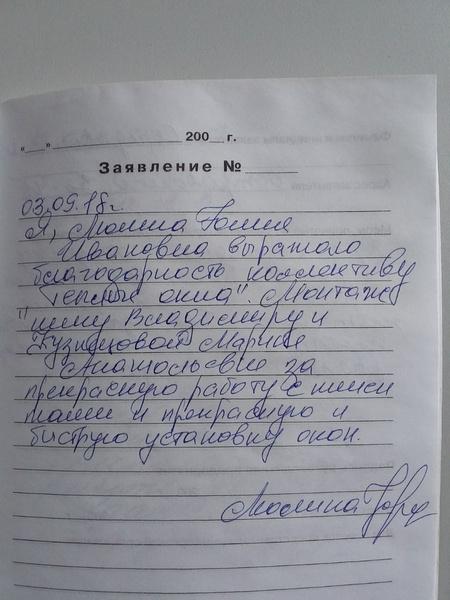 "___"____________200__г.
Заявление №______
03.09.18г.
Я, Мюлина Юлия
Ивановна выражаю
благодарность коллективу
"Теплые окна". Монтаж
нику Владимиру и
Кузнецовой Марине
Анатольевне за
прекрасную работу с клиен
тами и прекрасную и
быструю установку окон.